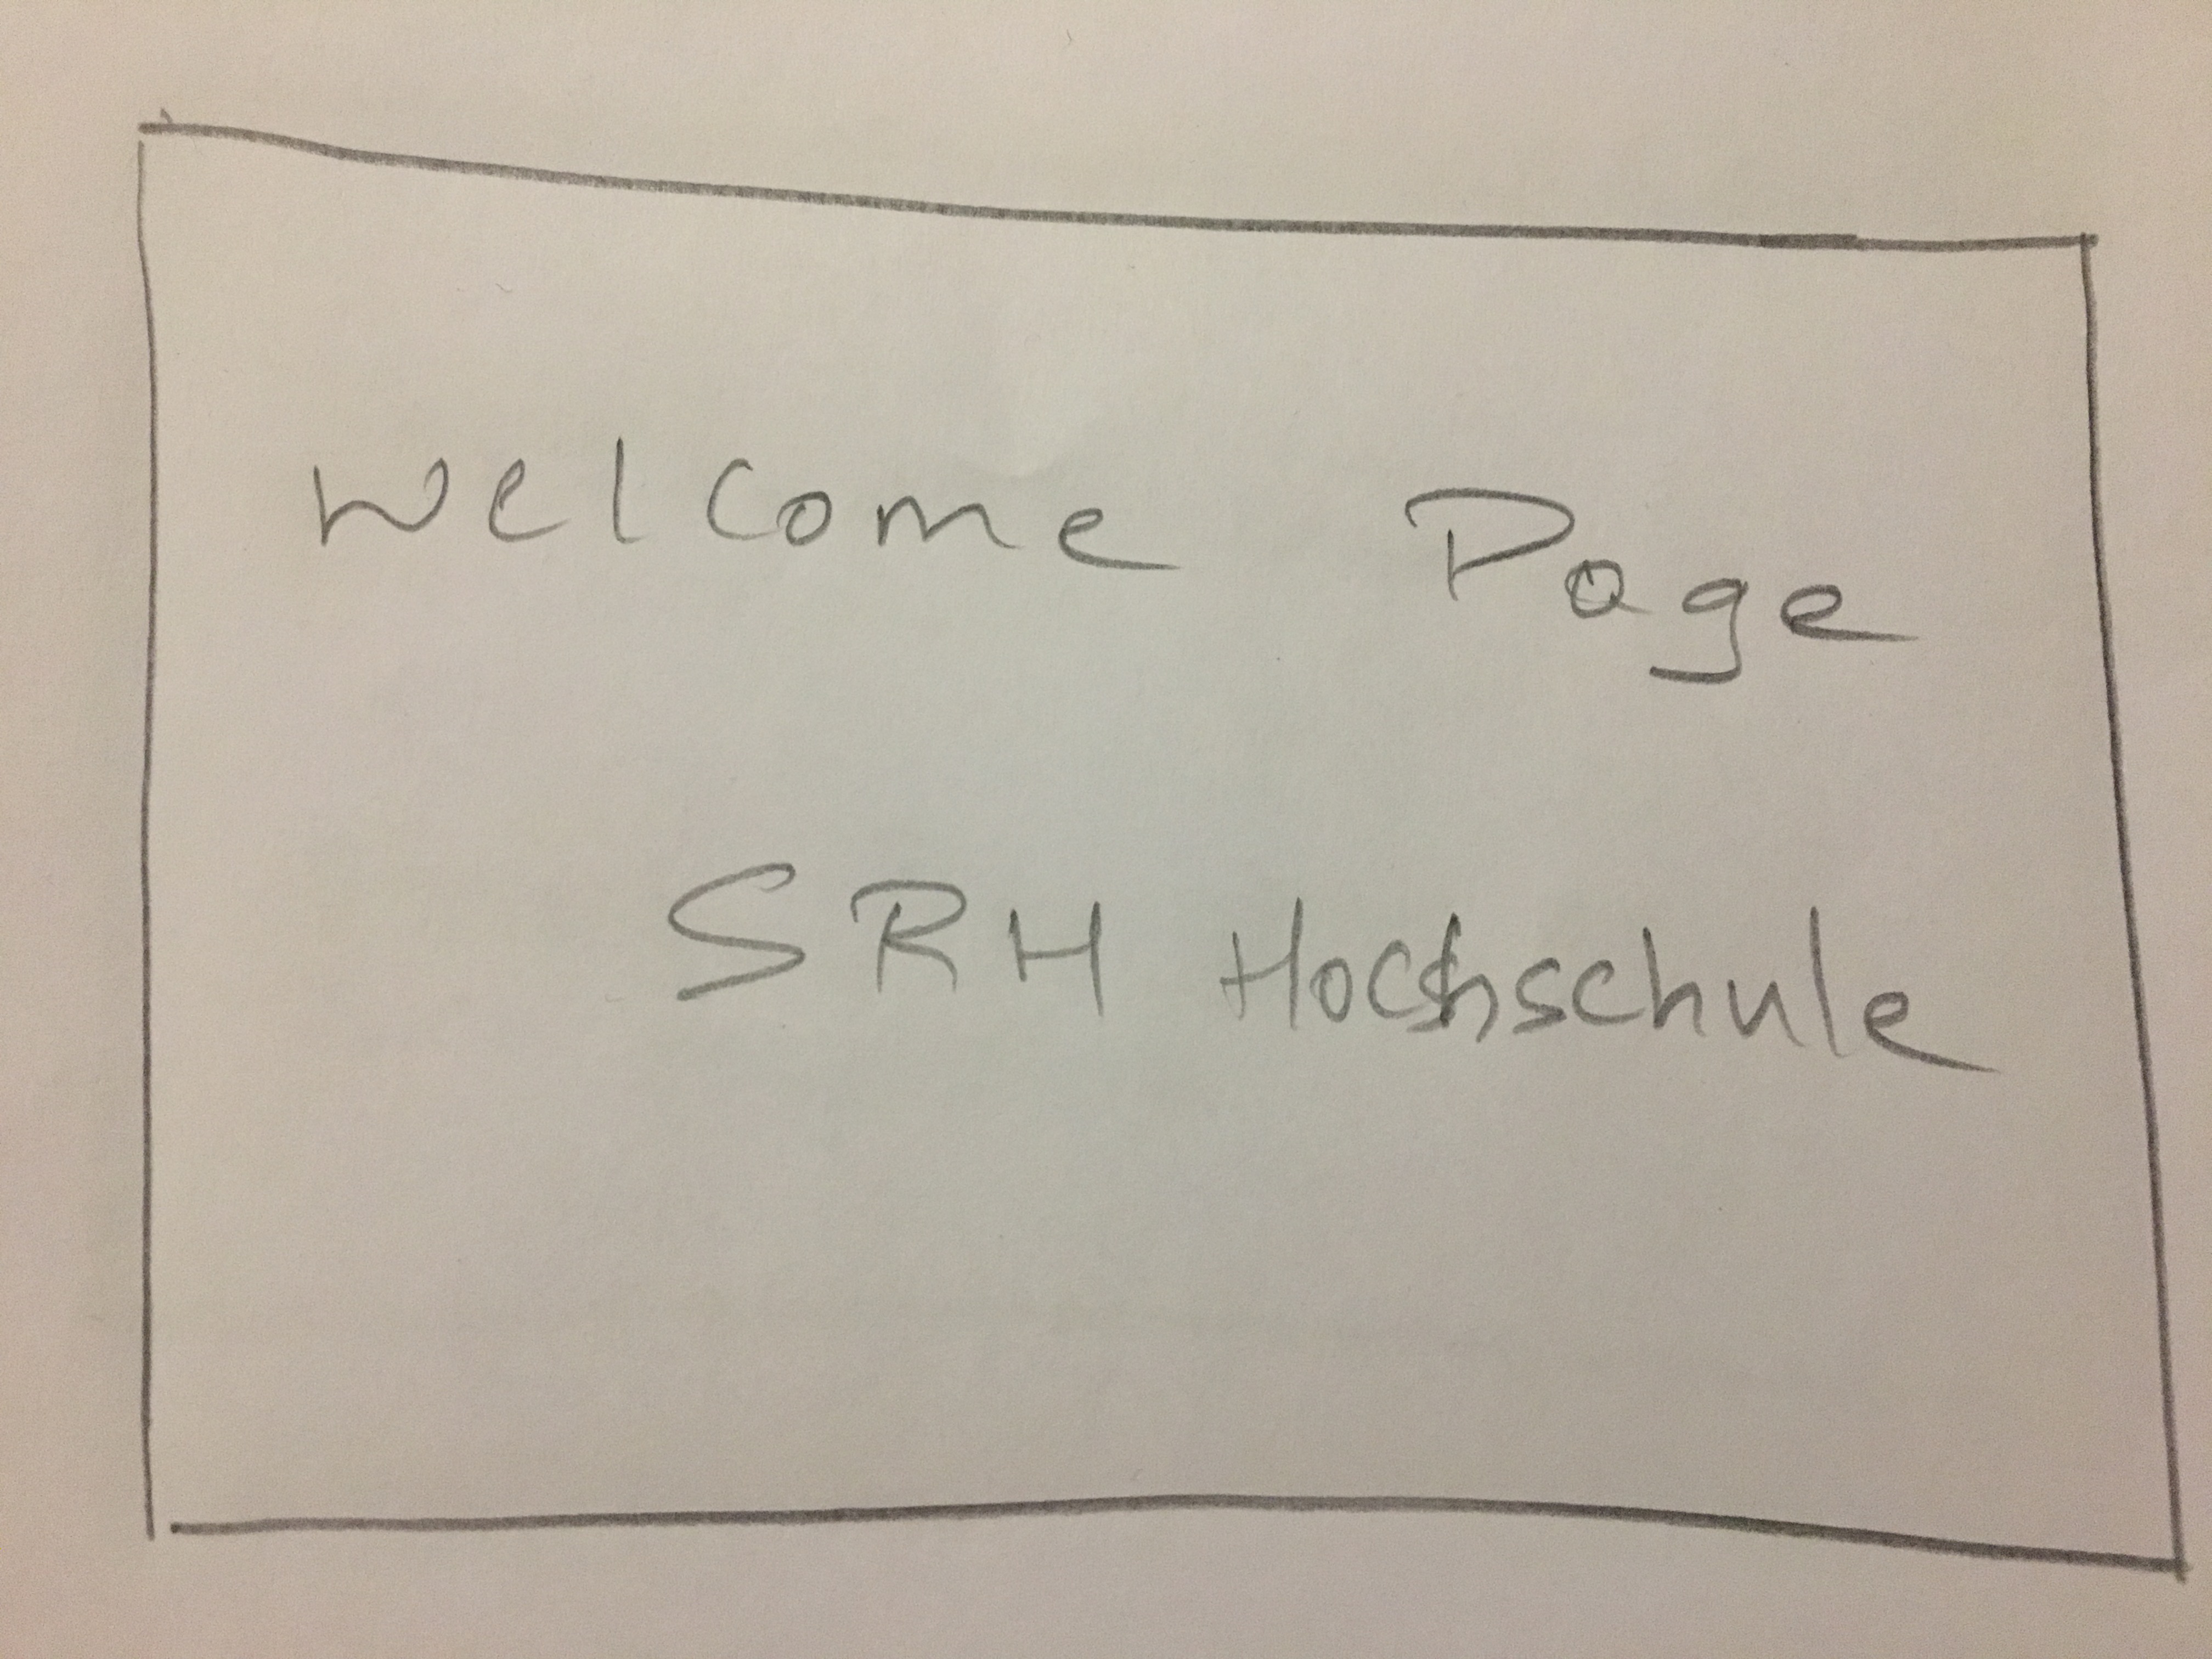 Welcome Page
SRH Hochschule